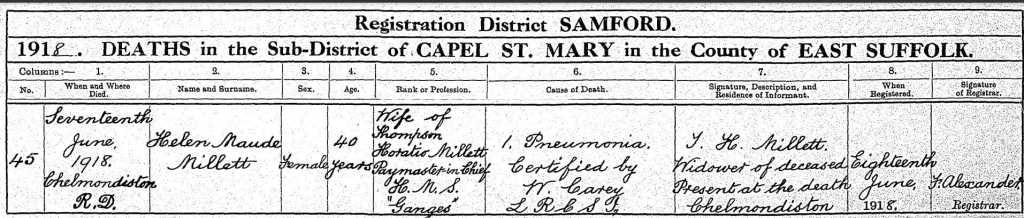 Registration District SAMFORD.
1918. DEATHS in the Sub-District of CAPEL ST. MARY in the County of EAST SUFFOLK.
Columns:— 1. 2. 3. 4. 5. 6. 7. 8. 9.
No. When and Where Died. Name and Surname. Sex. Age. Rank or Profession. Cause of Death. Signature, Description, and Residence of Informant. When Registered. Signature of Registrar.
45
Seventeenth
June,
1918.
Chelmondiston
R.D.
Helen Maude
Millett
Female
40
years
Wife of
Thompson
Horatio Millett
Paymaster in Chief
H.M.S.
"Ganges"
1. Pneumonia.
Certified by
W. Carey
L R C S I,
T. H. Millett.
Widower of deceased
Present at the death
Chelmondiston
Eighteenth
June,
1918.
F. Alexander.
Registrar.